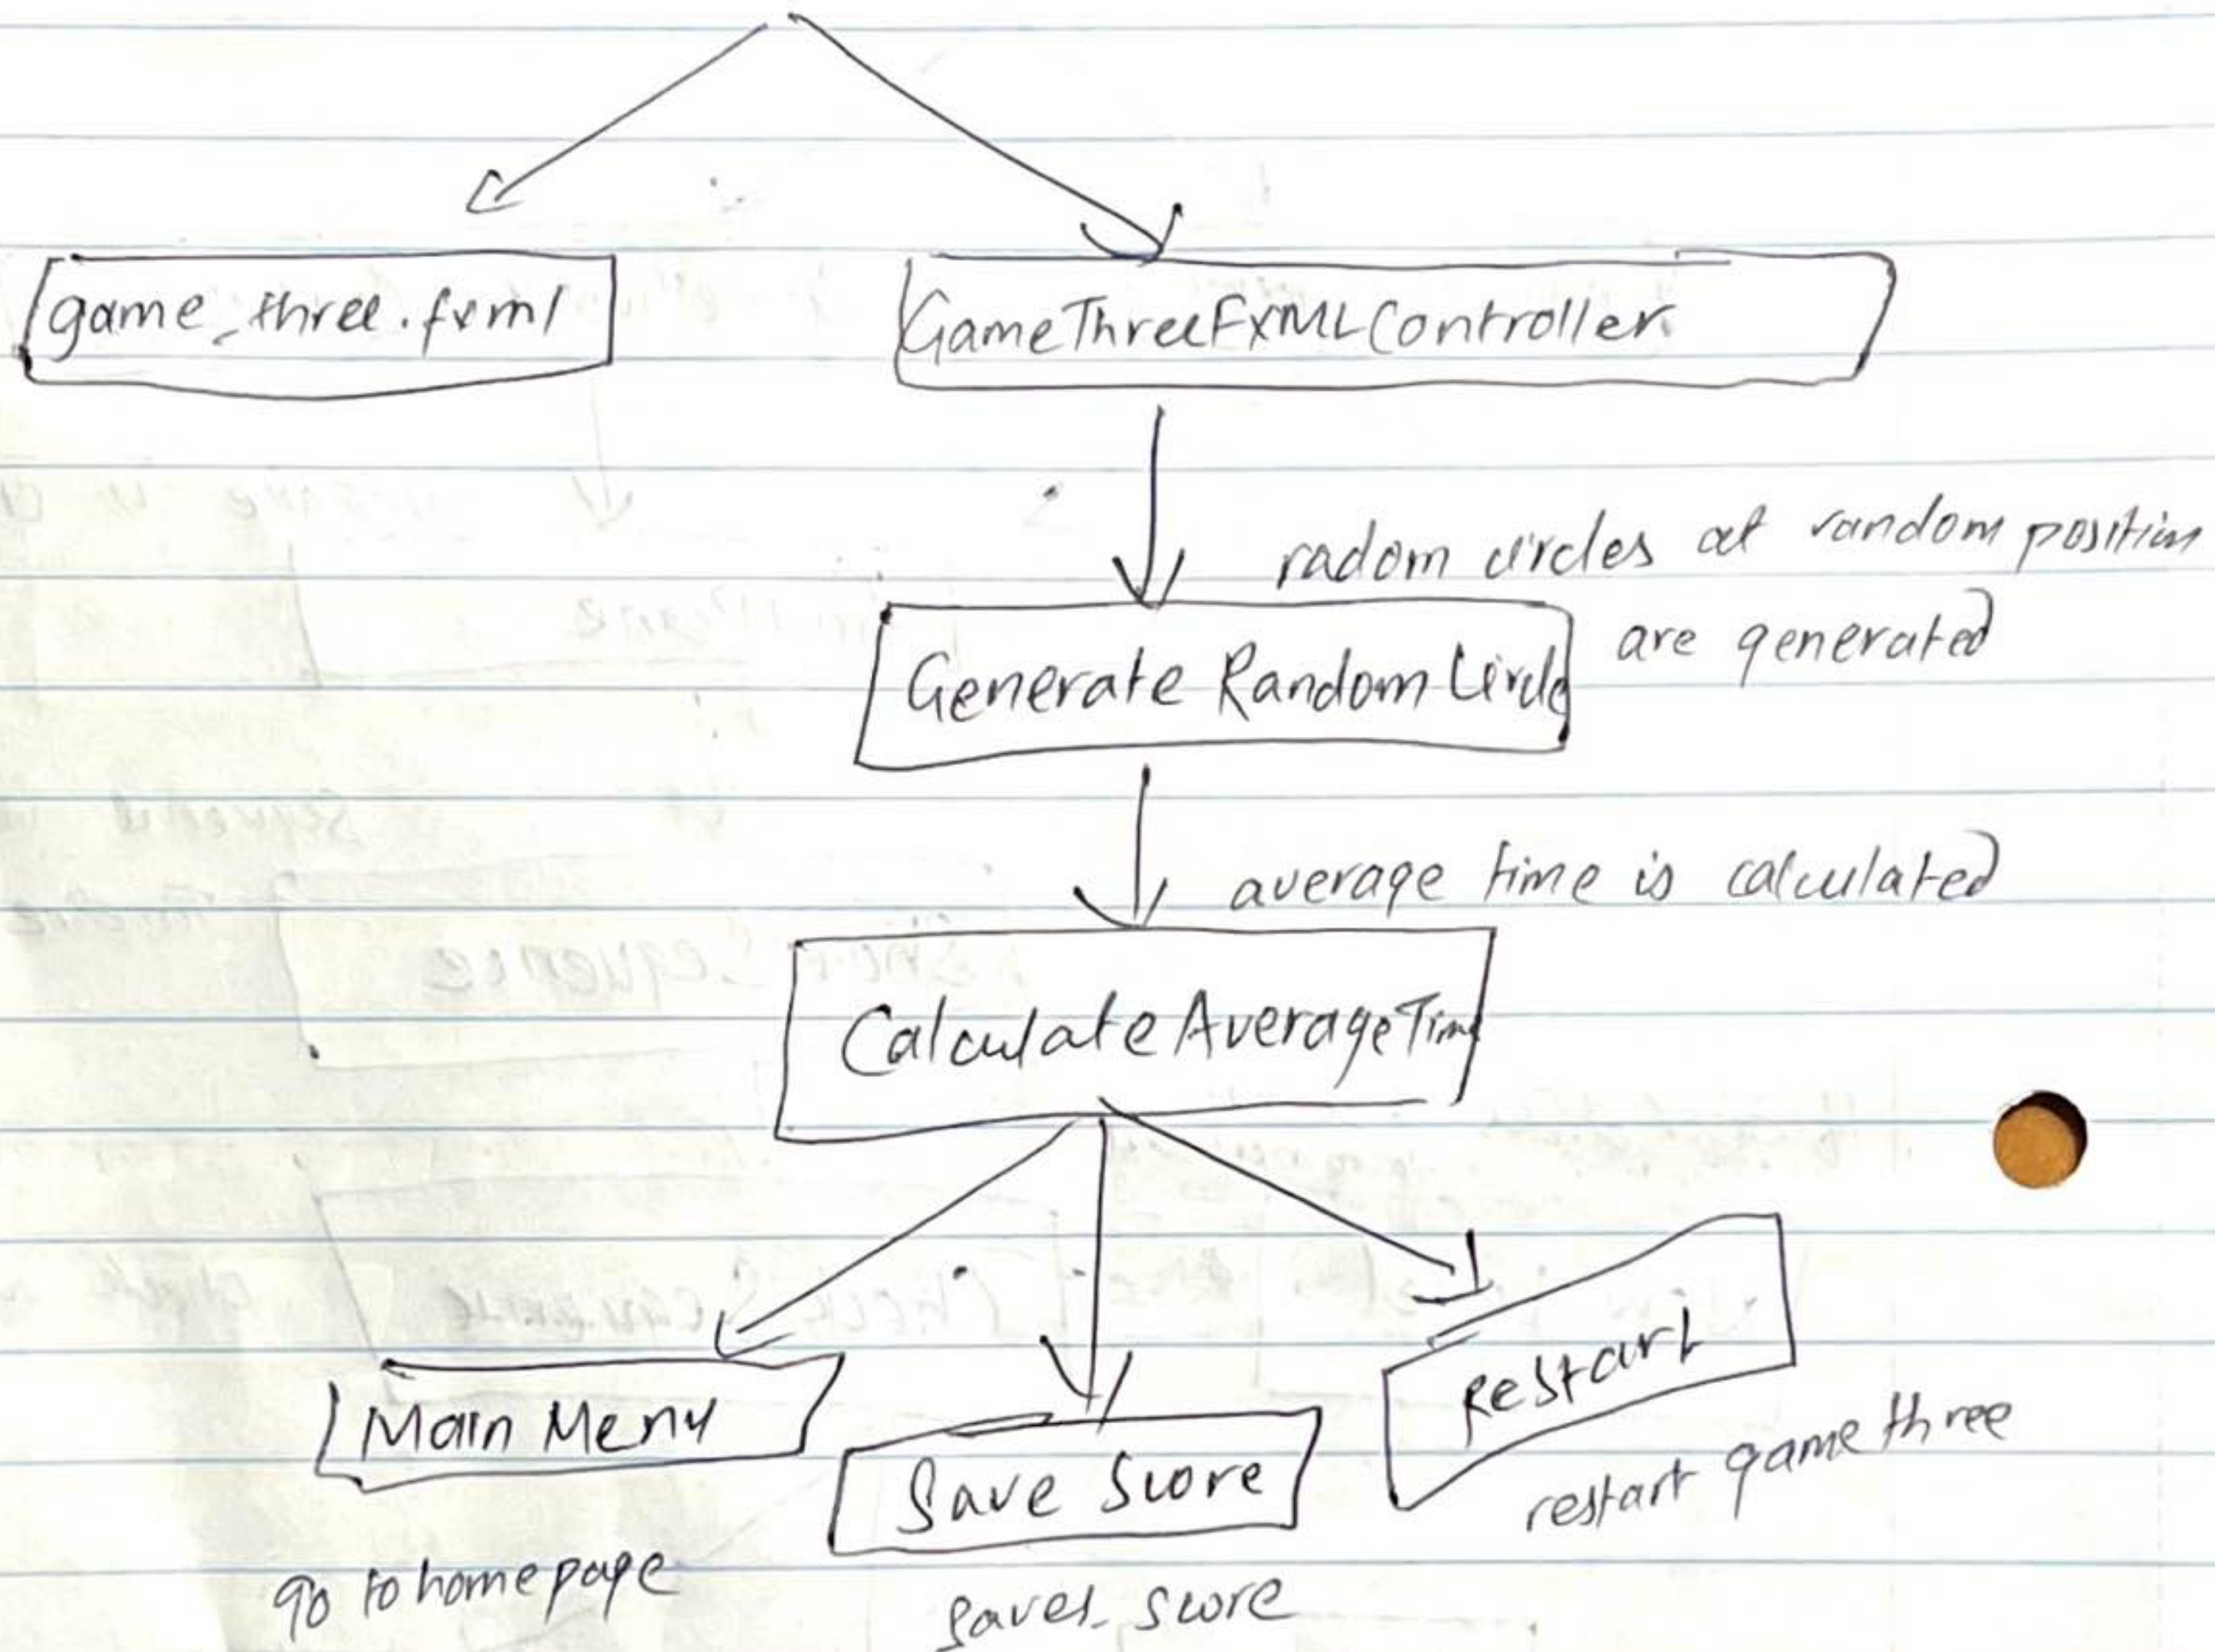 game_three.fxml
GameThreeFXMLController
radom circles at random position
are generated
Generate Random Circle
average time is calculated
CalculateAverageTime
Main Menu
Save Score
Restart
restart game three
go to homepage
saves score